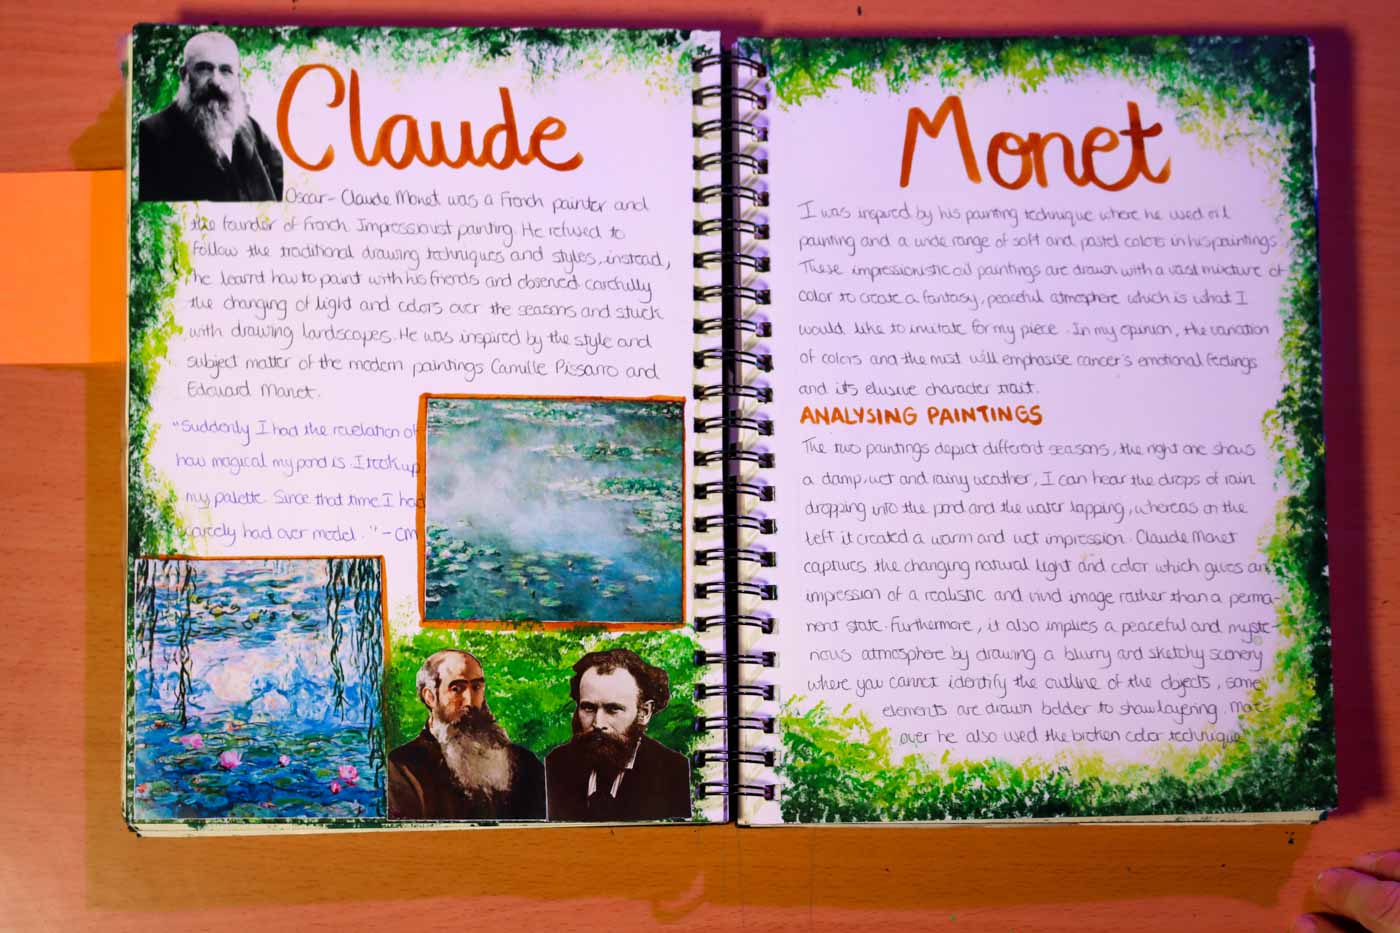 Claude
Oscar-Claude Monet was a French painter and
the founder of French Impressionist painting. He refused to
follow the traditional drawing techniques and styles, instead,
he learnt how to paint with his friends and observed carefully
the changing of light and colors over the seasons and stuck
with drawing landscapes. He was inspired by the style and
subject matter of the modern paintings Camille Pissarro and
Edouard Manet.
"Suddenly I had the revelation of
how magical my pond is. I took up
my palette. Since that time I had
scarcely had over model." - CM
Monet
I was inspired by his painting technique where he used oil
painting and a wide range of soft and pastel colors in his paintings.
These impressionistic oil paintings are drawn with a vast mixture of
color to create a fantasy, peaceful atmosphere which is what I
would like to imitate for my piece. In my opinion, the variation
of colors and the mist will emphasise cancer's emotional feelings
and its elusive character trait.
ANALYSING PAINTINGS
The two paintings depict different seasons, the right one shows
a damp, wet and rainy weather, I can hear the drops of rain
dropping into the pond and the water lapping, whereas on the
left it created a warm and wet impression. Claude Monet
captures the changing natural light and color which gives an
impression of a realistic and vivid image rather than a perma-
nent state. Furthermore, it also implies a peaceful and myste-
rious atmosphere by drawing a blurry and sketchy scenery
where you cannot identify the outline of the objects, some
elements are drawn bolder to show layering. More-
over he also used the broken color technique